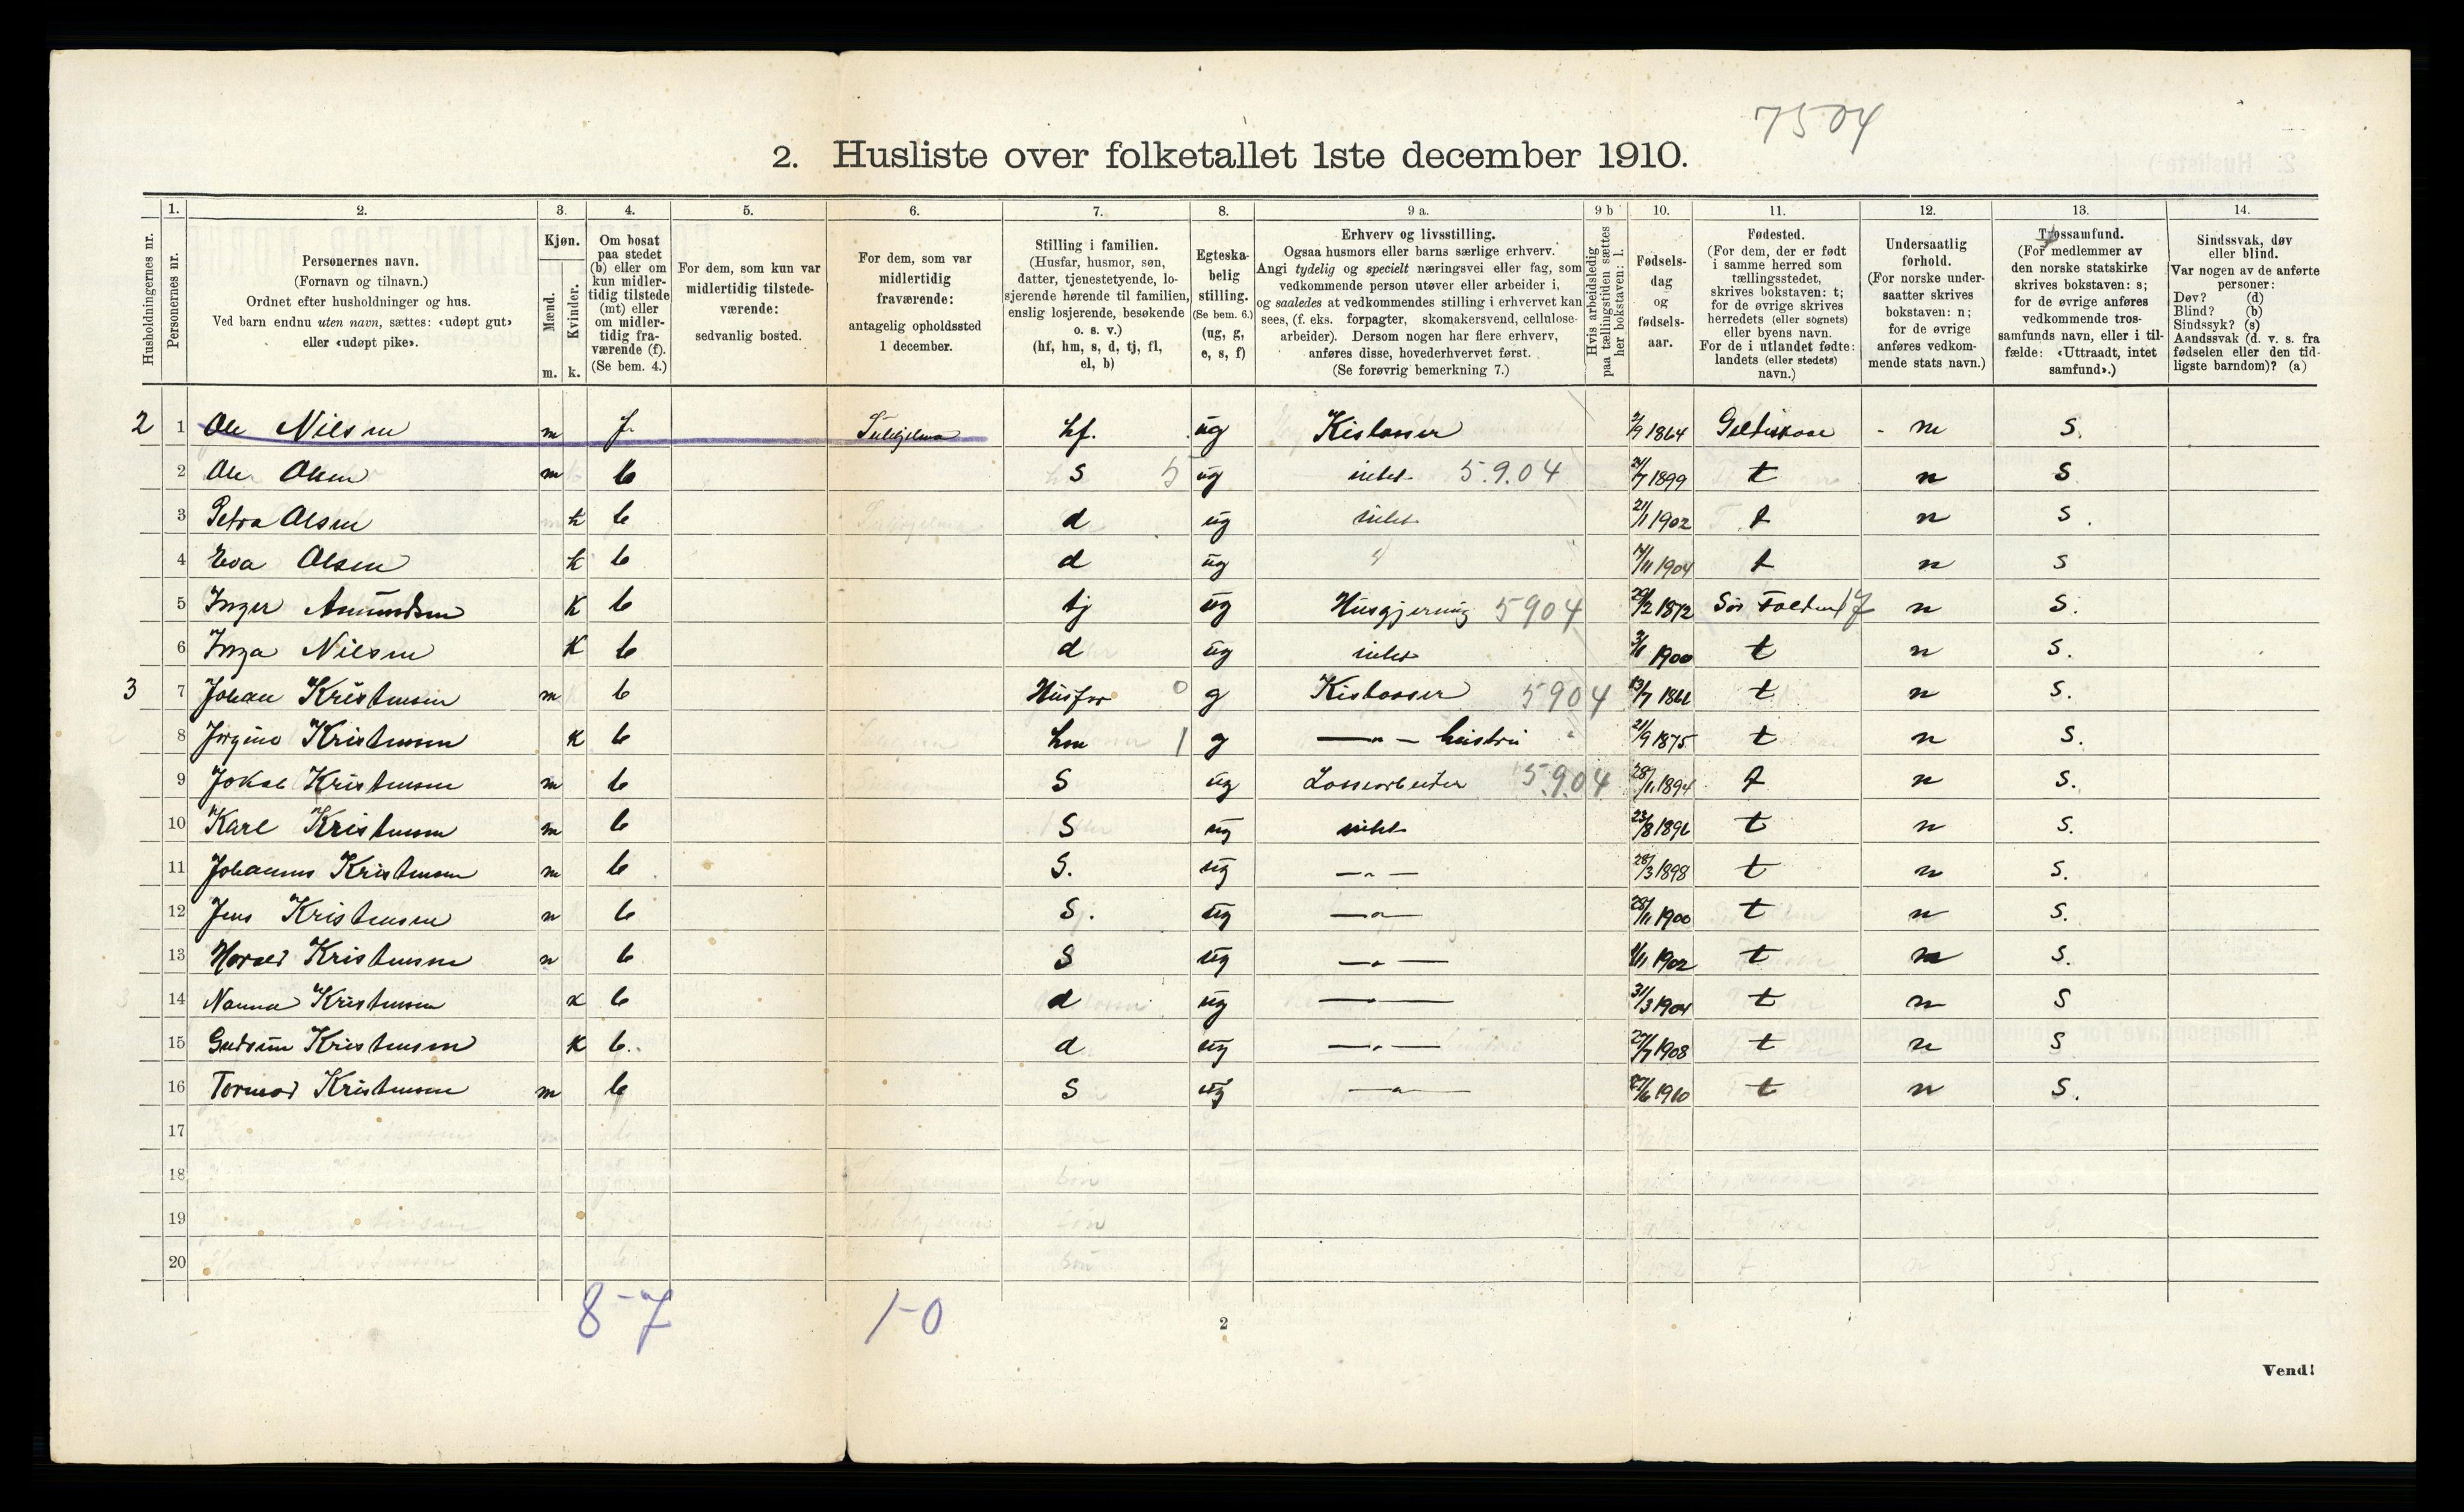 7504
2. Husliste over folketallet 1ste december 1910.
Husholdningernes nr.
1. Personernes nr.
2. Personernes navn.
(Fornavn og tilnavn.)
Ordnet efter husholdninger og hus.
Ved barn endnu uten navn, sættes: «udøpt gut»
eller «udøpt pike».
3. Kjøn.
Mænd. m.
Kvinder. k.
4. Om bosat
paa stedet
(b) eller om
kun midler-
tidig tilstede
(mt) eller
om midler-
tidig fra-
værende (f).
(Se bem. 4.)
5. For dem, som kun var
midlertidig tilstede-
værende:
sedvanlig bosted.
6. For dem, som var
midlertidig
fraværende:
antagelig opholdssted
1 december.
7. Stilling i familien.
(Husfar, husmor, søn,
datter, tjenestetyende, lo-
sjerende hørende til familien,
enslig losjerende, besøkende
o. s. v.)
(hf, hm, s, d, tj, fl,
el, b)
8. Egteska-
belig
stilling.
(Se bem. 6.)
(ug, g,
e, s, f)
9 a. Erhverv og livsstilling.
Ogsaa husmors eller barns særlige erhverv.
Angi tydelig og specielt næringsvei eller fag, som
vedkommende person utøver eller arbeider i,
og saaledes at vedkommendes stilling i erhvervet kan
sees, (f. eks. forpagter, skomakersvend, cellulose-
arbeider). Dersom nogen har flere erhverv,
anføres disse, hovederhvervet først.
(Se forøvrig bemerkning 7.)
9 b Hvis arbeidsledig
paa tællingstiden sættes
her bokstaven: l.
10. Fødsels-
dag
og
fødsels-
aar.
11. Fødested.
(For dem, der er født
i samme herred som
tællingsstedet,
skrives bokstaven: t;
for de øvrige skrives
herredets (eller sognets)
eller byens navn.
For de i utlandet fødte:
landets (eller stedets)
navn.)
12. Undersaatlig
forhold.
(For norske under-
saatter skrives
bokstaven: n;
for de øvrige
anføres vedkom-
mende stats navn.)
13. Trossamfund.
(For medlemmer av
den norske statskirke
skrives bokstaven: s;
for de øvrige anføres
vedkommende tros-
samfunds navn, eller i til-
fælde: «Uttraadt, intet
samfund».)
14. Sindssvak, døv
eller blind.
Var nogen av de anførte
personer:
Døv? (d)
Blind? (b)
Sindssyk? (s)
Aandssvak (d. v. s. fra
fødselen eller den tid-
ligste barndom)? (a)
2 1 Ole Nilsen m f hf. ug Kislosser 2/9 1864 n S.
2 Ole Olsen m b S 5 ug intet 5.9.04 1899 t n S
3 Petra Olsen k b d ug intet 21/1 1902 t n S.
4 Eva Olsen k b d ug " 1904 t n S
5 Inger Amundsen K b tj ug Husgjerning 5904 1872 Sør Folden 17 n S.
6 Inga Nilsen K b d ug intet 1900 t n S.
3 7 Johan Kristensen m b Husfar 0 g Kislosser 5904 13/7 1866 t n S.
8 Jørgine Kristensen K b hm 1 g —"— hustru 21/9 1875 t n S.
9 Jokab Kristensen m b S ug Lossearbeider 5.9.04 1894 t n S.
10 Karl Kristensen m b S ug intet 23/8 1896 t n S.
11 Johannes Kristensen m b S. ug —"— 28/3 1898 t n S.
12 Jens Kristensen m b S. ug —"— 28/11 1900 t n S.
13 Harald Kristensen m b S ug —"— 1902 t n S.
14 Nanna Kristensen K b d ug —"— 31/3 1904 t n S
15 Gudrun Kristensen K b. d ug —"— 27/7 1908 t n S
16 Tormod Kristensen m b S ug —"— 27/6 1910 t n S.
17
18
19
20
8-7 1-0
2
Vend!